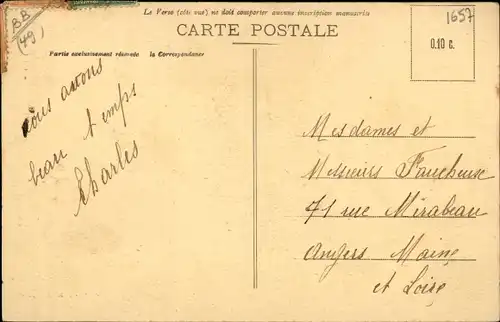 Le Verso (côté vue) ne doit comporter aucune inscription manuscrite
CARTE POSTALE
Partie exclusivement réservée à la Correspondance
BB
(49)
1657
0.10 c.
nous avons
beau temps
Charles
Mesdames et
Messieurs Faucheuse
71 rue Mirabeau
Angers Maine
et Loire